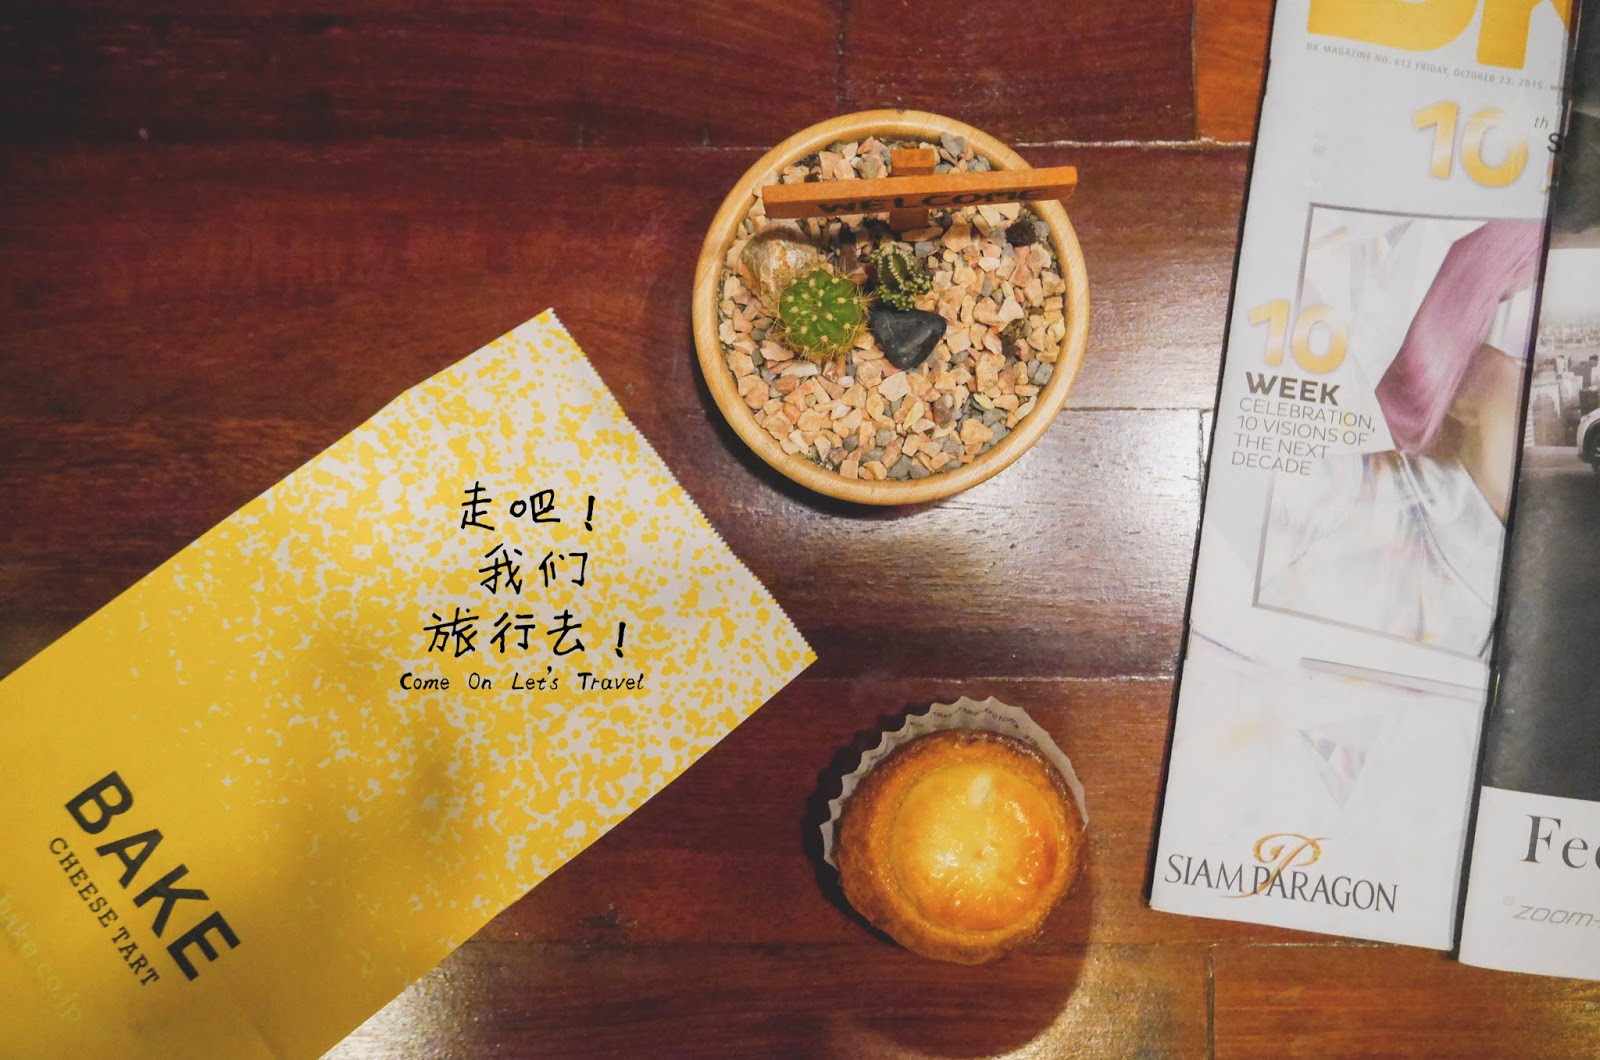 走吧！
我们
旅行去！
Come On Let's Travel
BAKE
CHEESE TART
bake.co.jp
WELCOME
BK MAGAZINE NO. 612 FRIDAY, OCTOBER 23, 2015
10th
10
WEEK
CELEBRATION,
10 VISIONS OF
THE NEXT
DECADE
SIAM PARAGON
Fee
zoom-